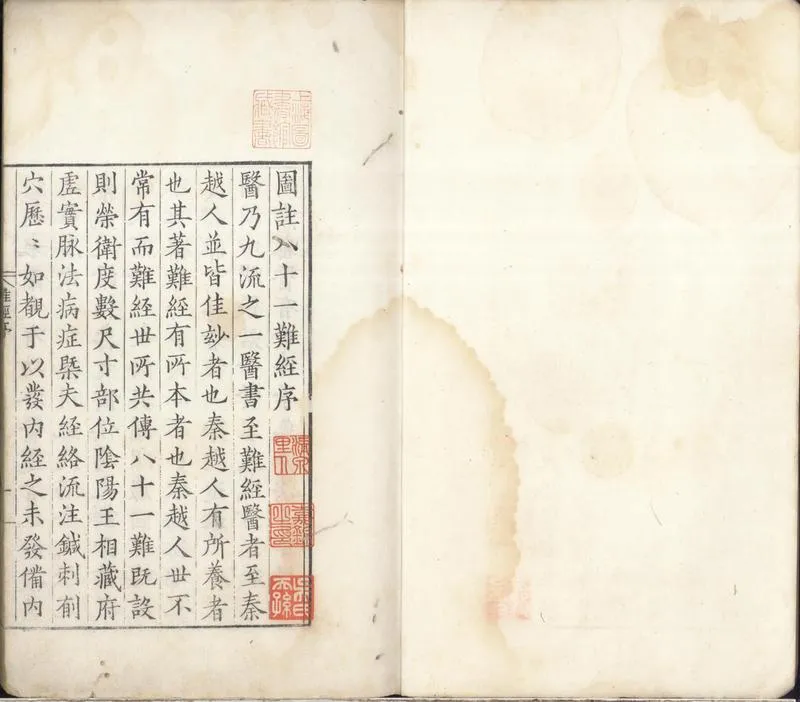 圖註八十一難經序
醫乃九流之一醫書至難經醫者至秦
越人並皆佳玅者也秦越人有所養者
也其著難經有所本者也秦越人世不
常有而難經世所共傳八十一難既設
則榮衛度數尺寸部位陰陽王相藏府
虛實脉法病症槩夫經絡流注鍼刺俞
穴歷〻如觀于以發內經之未發備內
難經序